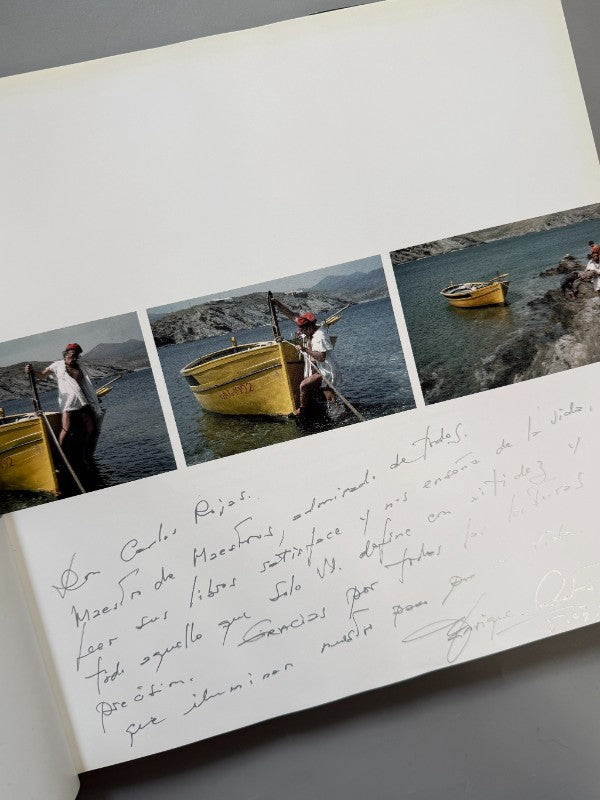 Don Carlos Rojas.
Maestro de Maestros, admirado de todos.
Leer sus libros satisface y nos enseña de la vida,
todo aquello que solo Vd. define con nitidez y
precisión. Gracias por todas las lecturas
que iluminan nuestro paso por vida.
Enrique